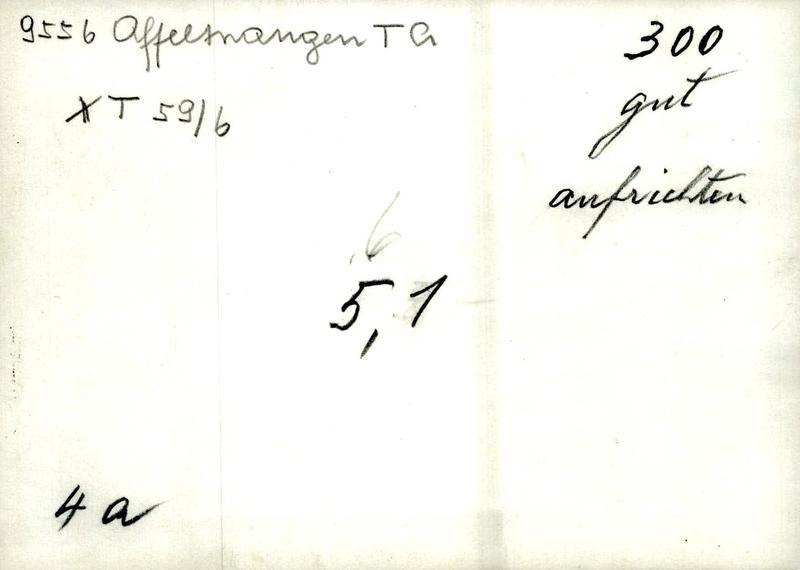 9556 Affeltrangen TG
X T 59/6
300
gut
aufrichten
6
5,1
4a